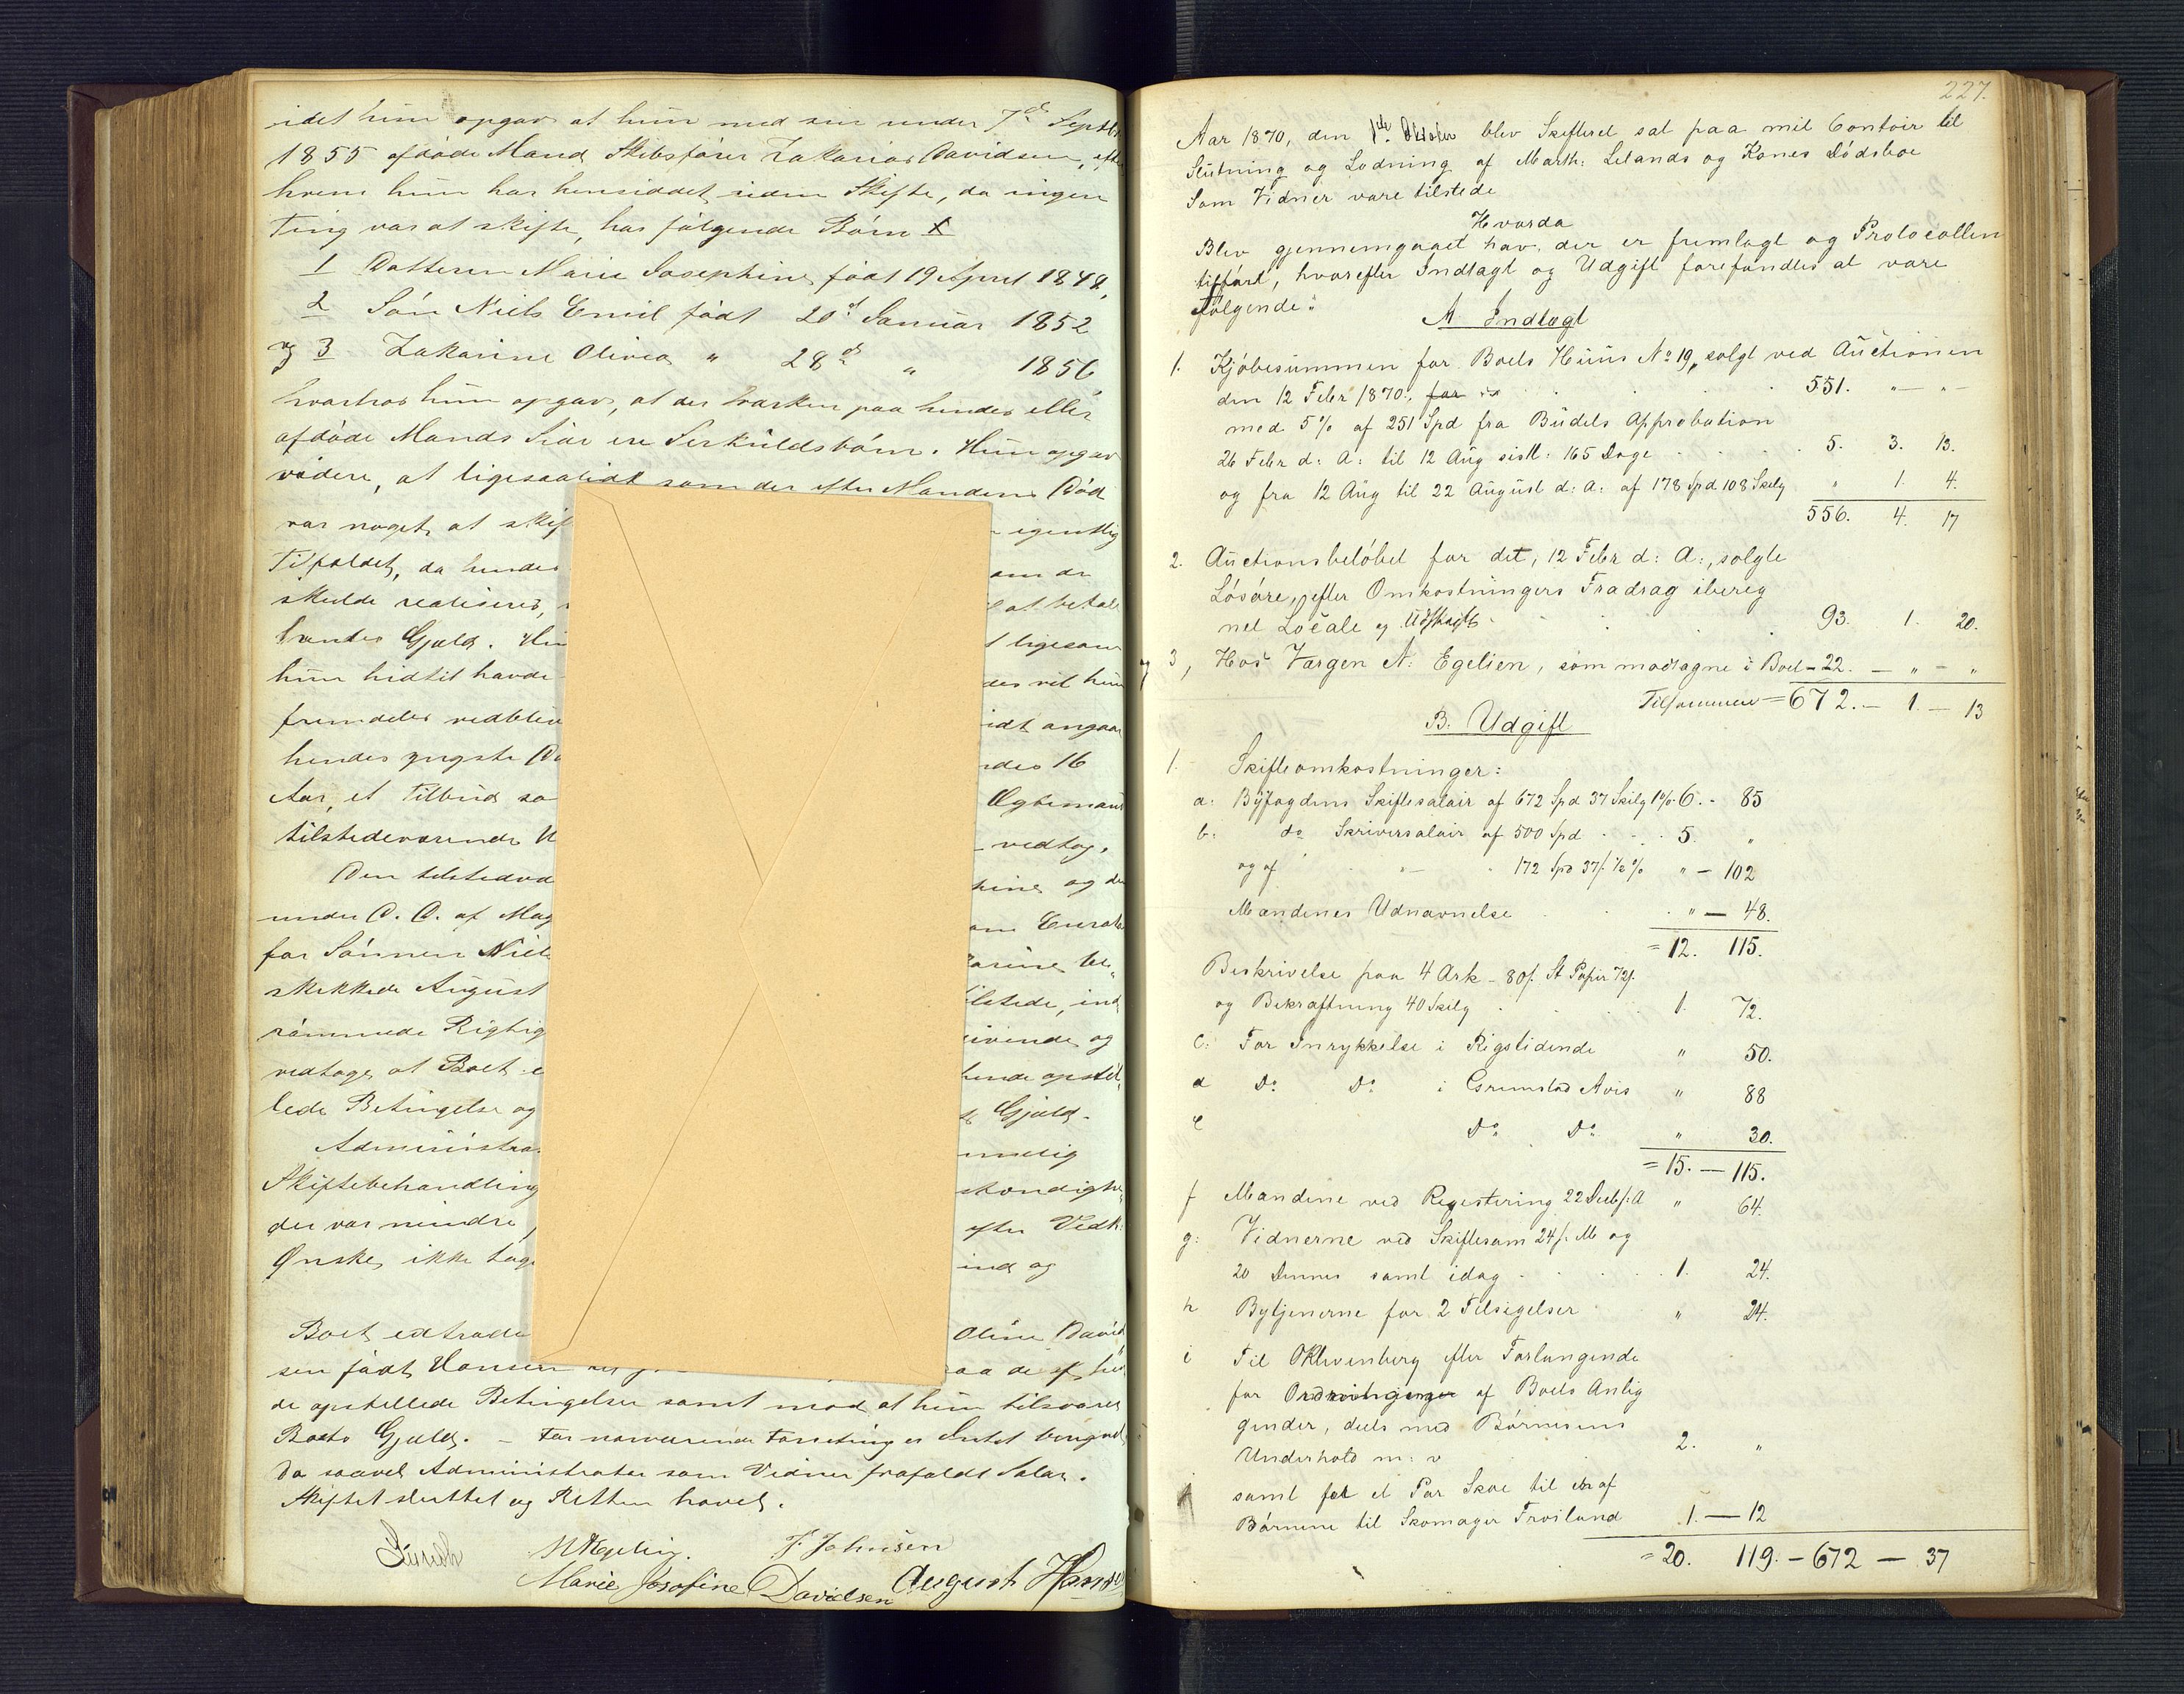 idet hun opgav at hun med sin under 7de Septbr
1855 afdøde Mand Skibsfører Zakarias Davidsen, efter
hvem hun har hensiddet uden Skifte, da ingen
Ting var at skifte, har følgende Børn
1 Datteren Marie Josephine født 19 April 1848,
2 Søn Niels Emil født 20d Januar 1852
og 3 Zakarine Olivea " 28d " 1856,
hvorhos hun opgav, at der hverken paa hendes eller
afdøde Mands Side ere Særkuldsbørn. Hun opgav
videre, at ligesaalidt som der efter Mandens Død
var noget at skif
igentlig
Tilfældet, da hendes
om de
skulde realiseres,
at betale
hendes Gjæld. Hun
ligesom
hun hidtil havde
des vil hun
fremdeles vedblive
idt angaar
hendes yngste Da
ndes 16
Aar, et Tilbud so
Ægtemand
tilstedeværende U
vedtog.
Den tilstedevæ
hine og de
under D. D. af Mag
om Curator
for Sønnen Niels
karine be-
skikkede August
ilstede, ind
rømmede Rigtig
ivende og
vedtoge at Boet
hende opstil-
lede Betingelse og
Gjæld.
Administra
mmelig
Skiftebehandling
stændighe-
der var mindre
efter Vedk:
Ønske, ikke tage
ind og
Boet extrade
Oline David
sen født Hansen
paa de af hen
de opstillede Betingelser samt mod at hun tilsvarer
Boets Gjæld. – For nærværende Forretning er Intet beregnet
da saavel Administrator som Vidner frafaldt Salær.
Skiftet sluttet og Retten hævet.
F. Johnsen
Marie Josofine Davidsen August Hansen
227.
Aar 1870, den 1ste Oktober blev Skifteret sat paa mit Contoir til
Slutning og Lodning af Math: Lelands og Kones Dødsboe
Som Vidner vare tilstede
Hvorda
Blev gjennemgaaet hav. der er fremlagt og Protocollen
tilført, hvorefter Indtægt og Udgift forefandtes at være
følgende:
A Indtægt
1. Kjøbesummen for Boets Huus No 19, solgt ved Auctionen
den 12 Febr 1870, for 551. " "
med 5% af 251 Spd fra Budets Approbation
26 Febr d: A: til 12 Aug sistl: 165 Dage 5. 3. 13.
og fra 12 Aug til 22 August d: A: af 178 Spd 108 Skilg " 1. 4.
556. 4. 17
2. Auctionsbeløbet for det, 12 Febr d: A:, solgte
Løsøre, efter Omkostningers Fradrag ibereg
net Locale og 93. 1. 20.
og 3, Hos Værgen N: Egelien, som modtagne i Boet – 22. – " – "
Tilsammen = 672. – 1. – 13
B. Udgift
1. Skifteomkostninger:
a: Byfogdens Skiftesalair af 672 Spd 37 Skilg 1% 6. - 85
b: do Skriversalair af 500 Spd 5. "
og af " 172 Spd 37/. ½% " – 102
Mændenes Udnævnelse " – 48.
= 12. 115.
Beskrivelse paa 4 Ark – 80/. St Papir 72/.
og Bekræftning 40 Skilg 1. 72.
c: For Inrykkelse i Rigstidende " 50.
d Do Do i Grimstad Avis " 88
e Do Do " 30.
= 15. – 115.
f Mændene ved Regestering 22 Decb f: A " 64.
g: Vidnerne ved Skiftesam 24 f: M og
20 Dennes samt idag 1. 24.
h Bytjenerne for 2 Tilsigelser " 24.
i Til OKlevenberg efter Forlangende
for af Boets Anlig
gender, deels med Børnenens
Underhold m: v 2. "
samt for et Par Skoe til en af
Børnene til Skomager Froiland 1. – 12
= 20. 119. – 672 – 37